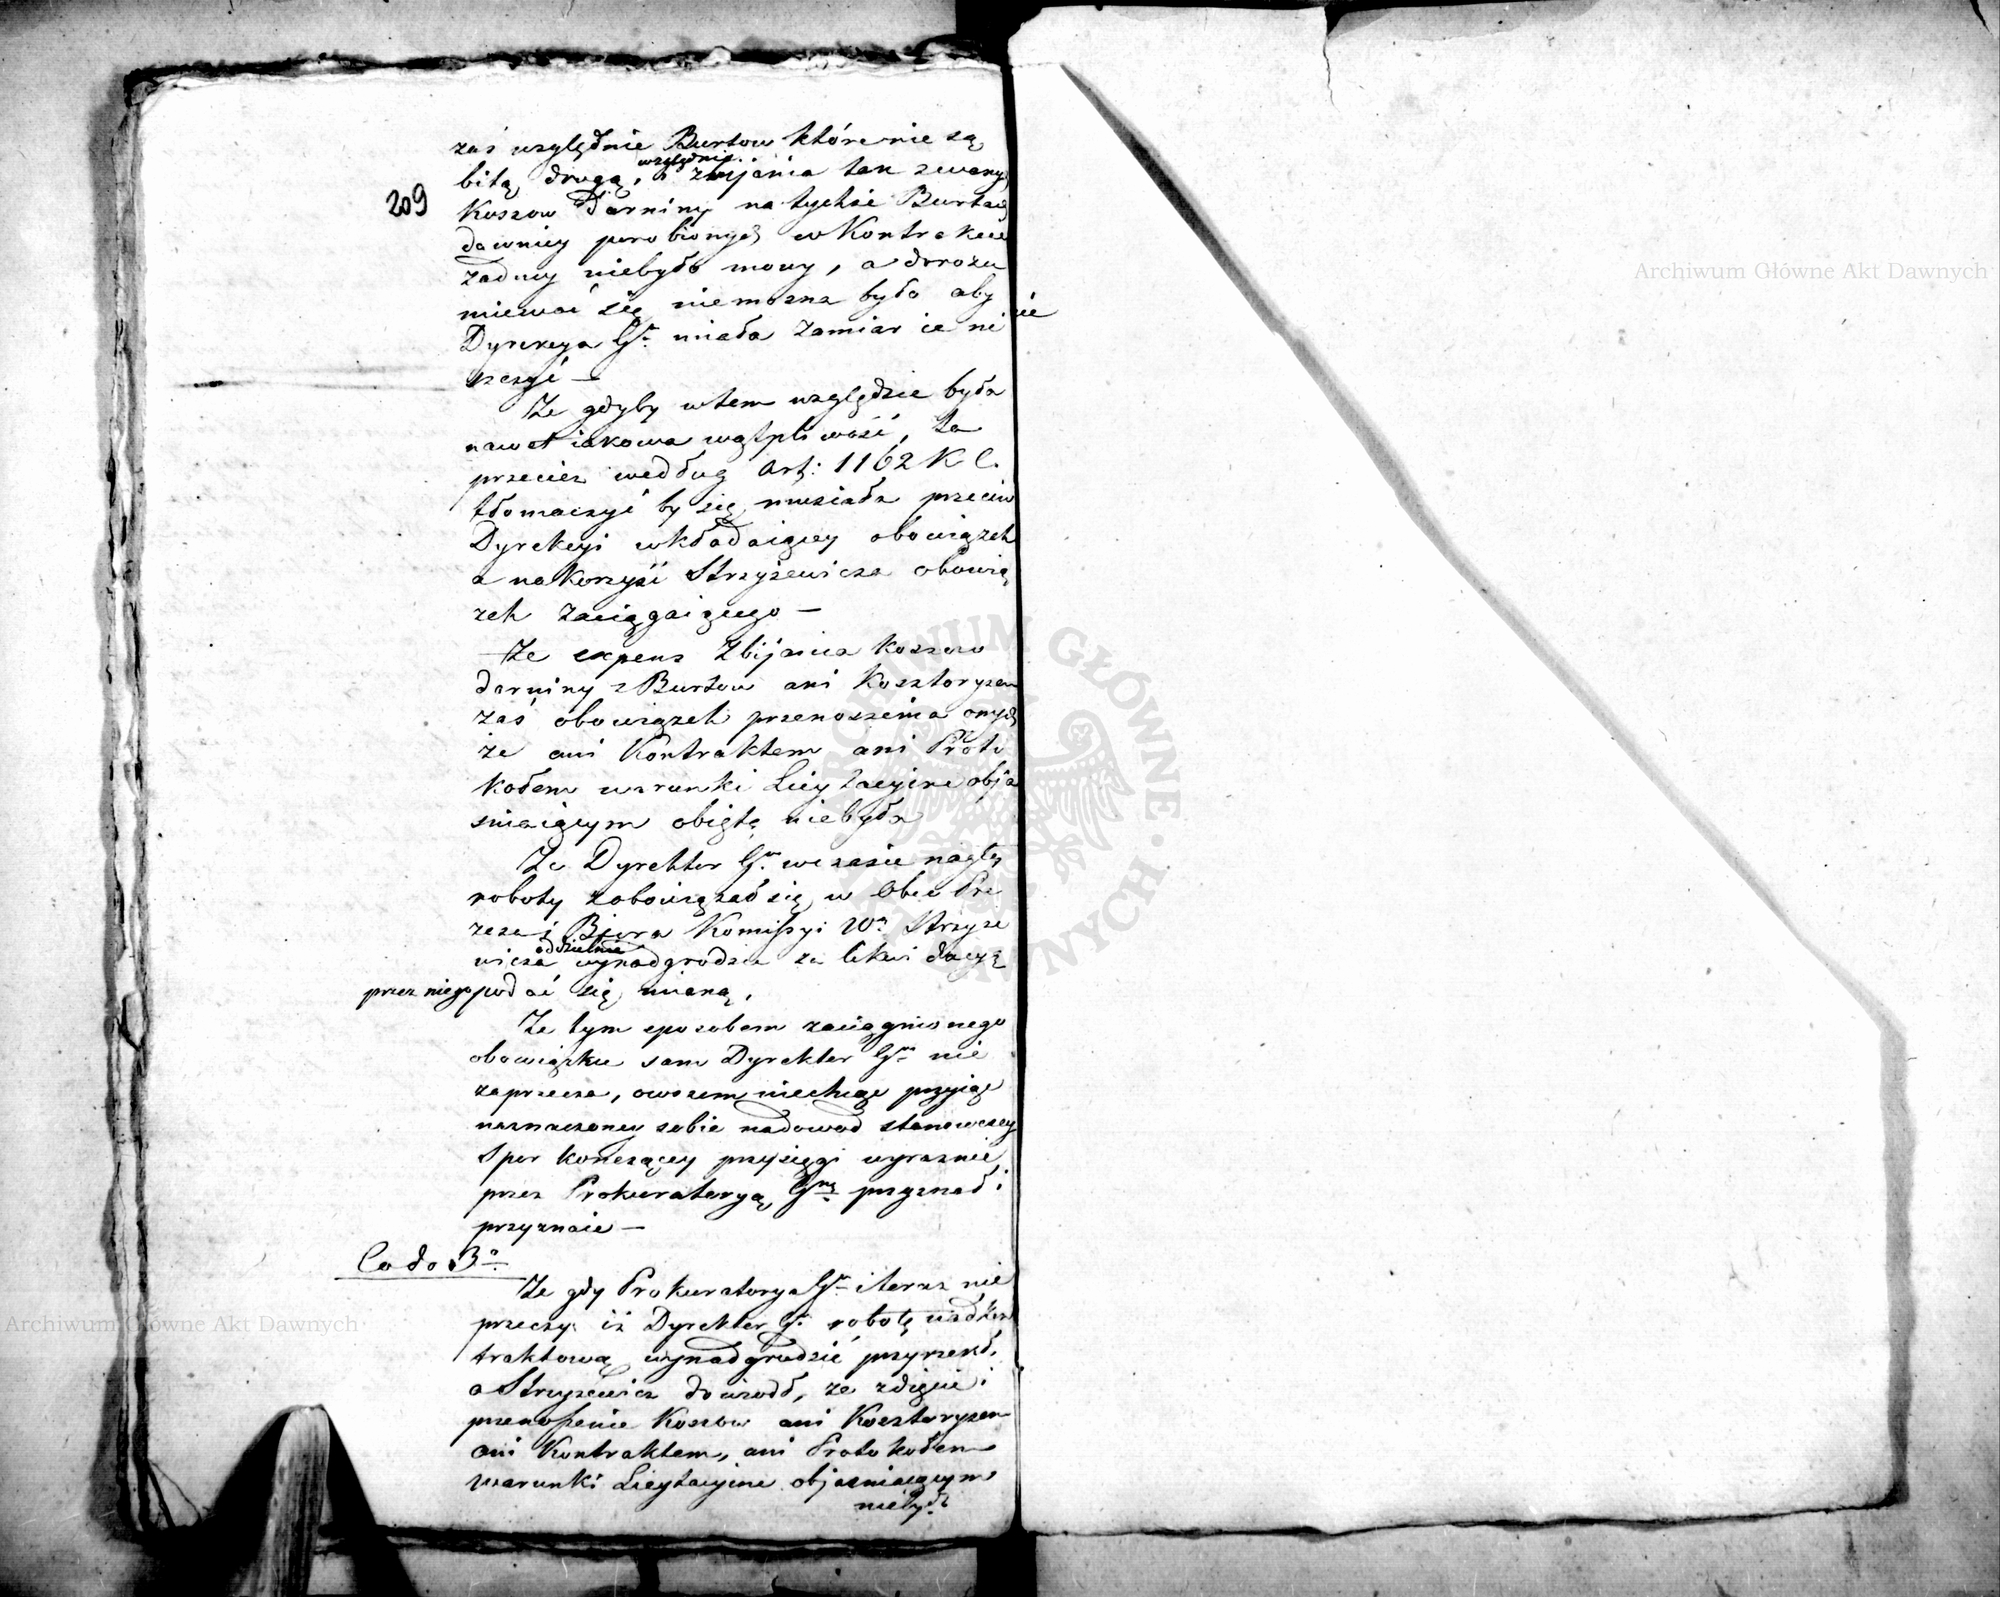 209
zaś względnie Burtow które nie są
bitą drogą, a względnie zbijania tak zwanych
Koszow Darniny na tychże Burtach
dawniey porobionych w Kontrakcie
żadney niebyło mowy, a dorozu
miewać się niemożna było aby
Dyrekcya Gła miała zamiar ie ni
szczyć —
Że gdyby w tem względzie była
nawet iakowa wątpliwość, ta
przecież według Art: 1162 K C.
tłomaczyć by się musiała przeciw
Dyrekcyi wkładaiącey obowiązek
a na korzyść Strzyżewicza obowią
zek zaciągaiącego —
Że expens zbijania koszow
darniny z Burtow ani Kosztorysem
zaś obowiązek przenoszenia onych
że ani Kontraktem ani Proto
kołem warunki Licytacyine obja
śniaiącym obięte niebyła
Że Dyrektor Gły w czasie nagłey
roboty zobowiązał się w Obec Pre
zesa i Biora Komissyi Wa Strzyże
wicza oddzielnie wynadgrodzić za likwidacyą
przez niego podać się mianą,
Że tym sposobem zaciągnionego
obowiązku sam Dyrektor Gły nie
zaprzecza, owszem niechcąc przyiąć
naznaczoney sobie na dowod stanowczey
Spor kończącey przysięgi wyraznie
przez Prokuratoryą Gną przyznał i
przyznaie —
Co do 3o
Że gdy Prokuratorya Gła i teraz nie
przeczy iż Dyrektor Gy robotę nadkon
traktową wynadgrodzić przyrzekł,
a Strzyżewicz dowiodł, że zdięcie i
przenoszenie Koszow ani Kosztorysem
ani Kontraktem, ani Protokołem
warunki Licytacyine objaśniaiącym
niebył
Archiwum Główne Akt Dawnych
Archiwum Główne Akt Dawnych
ARCHIWUM GŁÓWNE AKT DAWNYCH